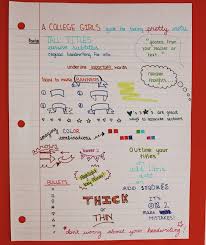 A COLLEGE GIRLS guide for taking pretty notes
TALL TITLES
cursive subtitles
regular handwriting for info
"quotes from
your teacher or
text."
underline important words
how to make BANNERS
random
thoughts
COLOR
combinations
are great
to separate sections
Outline your
titles
BULLETS
ADD STROKES
THICK
or
THIN
IT'S
OK 2
MAKE
MISTAKES!
don't worry about your handwriting!